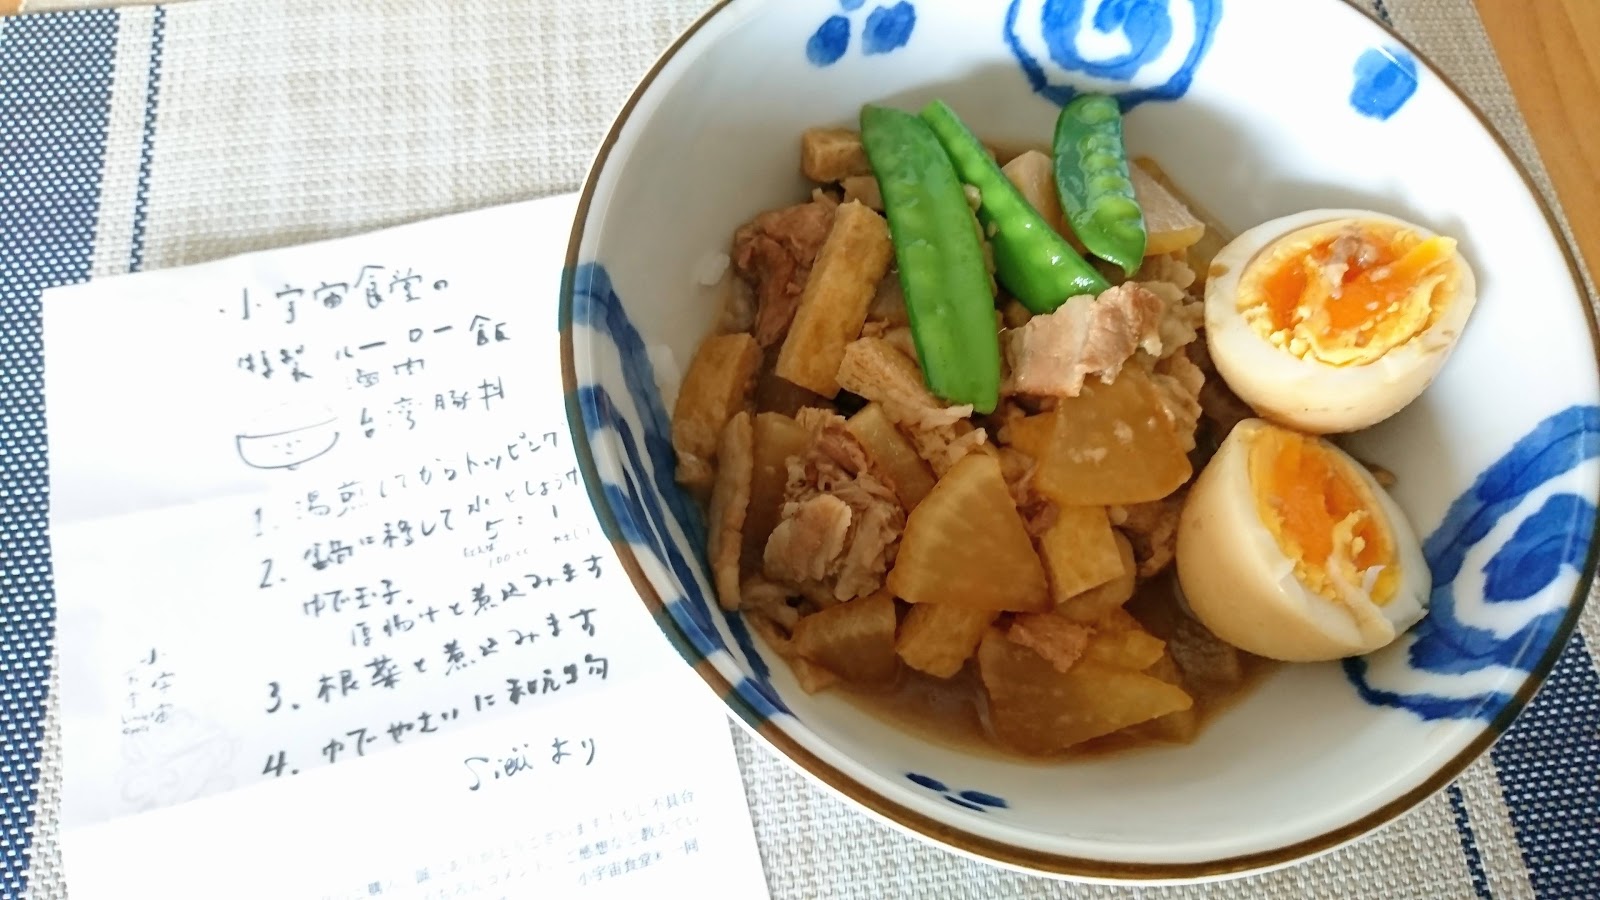 小宇宙食堂の
特製 ルーロー飯
滷肉
台湾豚丼
1. 湯煎してからトッピング
2. 鍋に移して水としょうゆ
5:1
100cc
ゆで玉子、
厚揚げと煮込みます
3. 根菜と煮込みます
4. ゆでやさいに
より
小
宇
宙
購入、誠にありがとうございます！もし不具合
ちろんコメント、ご感想など教えてい
小宇宙食堂 一同